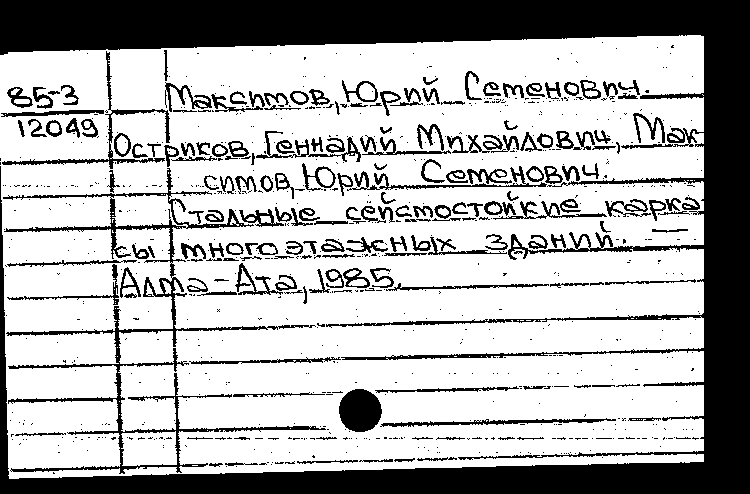 85-3 Максимов, Юрий Семенович.
12049
Остриков, Геннадий Михайлович, Мак
симов, Юрий Семенович.
Стальные сейсмостойкие карка
сы многоэтажных зданий. —
Алма-Ата, 1985.